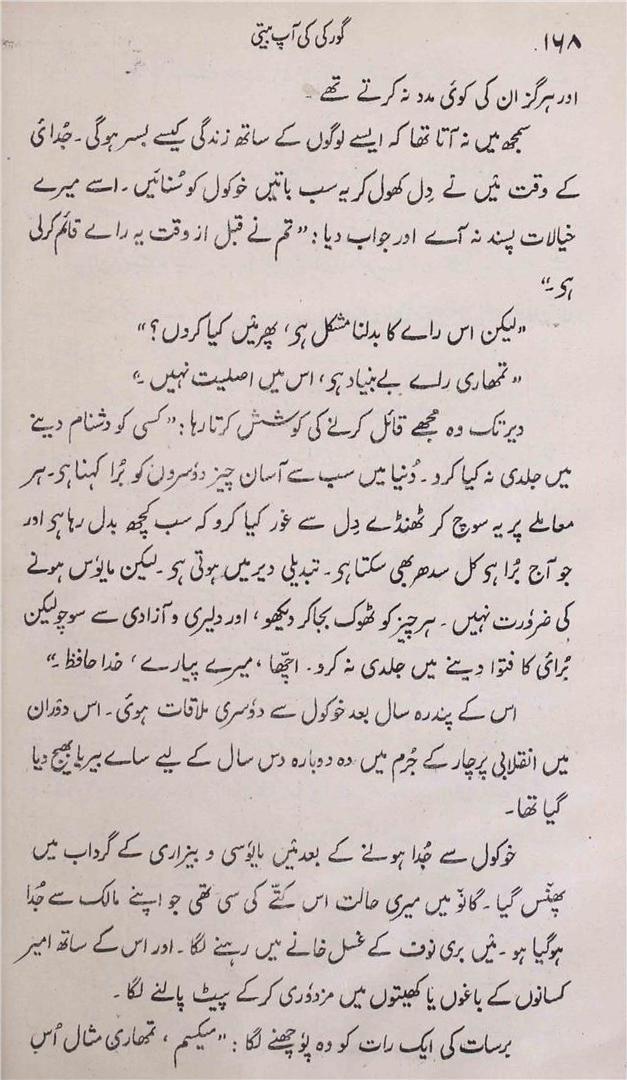 ۱۶۸
گورکی کی آپ بیتی
اور ہرگز ان کی کوئی مدد نہ کرتے تھے۔
سمجھ میں نہ آتا تھا کہ ایسے لوگوں کے ساتھ زندگی کیسے بسر ہوگی۔ جُدائی
کے وقت مَیں نے دِل کھول کر یہ سب باتیں خوکول کو سُنائیں۔ اسے میرے
خیالات پسند نہ آے اور جواب دیا: "تم نے قبل از وقت یہ راے قائم کرلی
ہی۔"
"لیکن اس راے کا بدلنا مشکل ہی، پھر مَیں کیا کروں؟"
"تمھاری راے بے بنیاد ہی، اس میں اصلیت نہیں۔"
دیر تک وہ مجھے قائل کرنے کی کوشش کرتا رہا: "کسی کو دشنام دینے
میں جلدی نہ کیا کرو۔ دُنیا میں سب سے آسان چیز دوٗسروں کو بُرا کہنا ہی۔ ہر
معاملے پر یہ سوچ کر ٹھنڈے دِل سے غور کیا کرو کہ سب کچھ بدل رہا ہی اور
جو آج بُرا ہی کل سدھر بھی سکتا ہی۔ تبدیلی دیر میں ہوتی ہی۔ لیکن مایوٗس ہونے
کی ضروٗرت نہیں۔ ہر چیز کو ٹھوک بجا کر دیکھو، اور دلیری و آزادی سے سوچو لیکن
بُرائی کا فتوا دینے میں جلدی نہ کرو۔ اچّھا، میرے پیارے، خدا حافظ۔"
اس کے پندرہ سال بعد خوکول سے دوٗسری ملاقات ہوئی۔ اس دوٗران
میں انقلابی پرچار کے جُرم میں وہ دوبارہ دس سال کے لیے ساے بیریا بھیج دیا
گیا تھا۔
خوکول سے جُدا ہونے کے بعد مَیں مایوٗسی و بیزاری کے گرداب میں
پھنس گیا۔ گانوٗ میں میری حالت اس کتّے کی سی تھی جو اپنے مالک سے جُدا
ہوگیا ہو۔ مَیں بری نوف کے غسل خانے میں رہنے لگا۔ اور اس کے ساتھ امیر
کسانوں کے باغوں یا کھیتوں میں مزدوٗری کرکے پیٹ پالنے لگا۔
برسات کی ایک رات کو وہ پوٗچھنے لگا: "میکسم، تمھاری مثال اُس